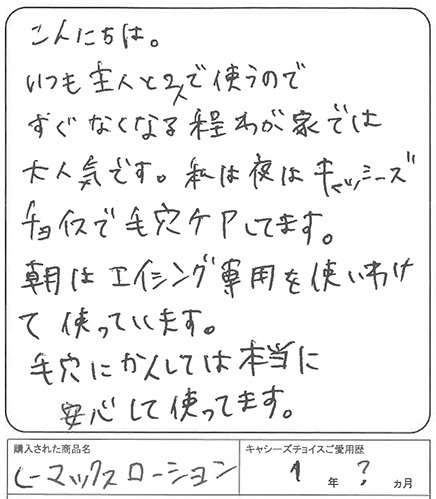 こんにちは。
いつも主人と2人で使うので
すぐなくなる程わが家では
大人気です。私は夜はキャシーズ
チョイスで毛穴ケアしてます。
朝はエイジング専用を使いわけ
て使っています。
毛穴にかんしては本当に
安心して使ってます。
購入された商品名
キャシーズチョイスご愛用歴
シーマックスローション
1年?ヵ月